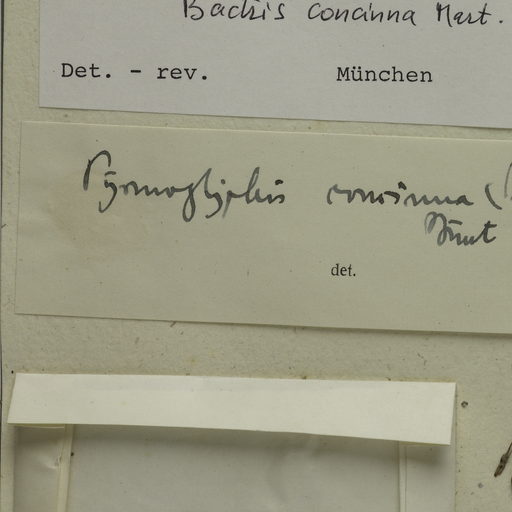 Bactris concinna Mart.
Det. - rev. München
Pyrenoglyphis concinna (
Burret
det.